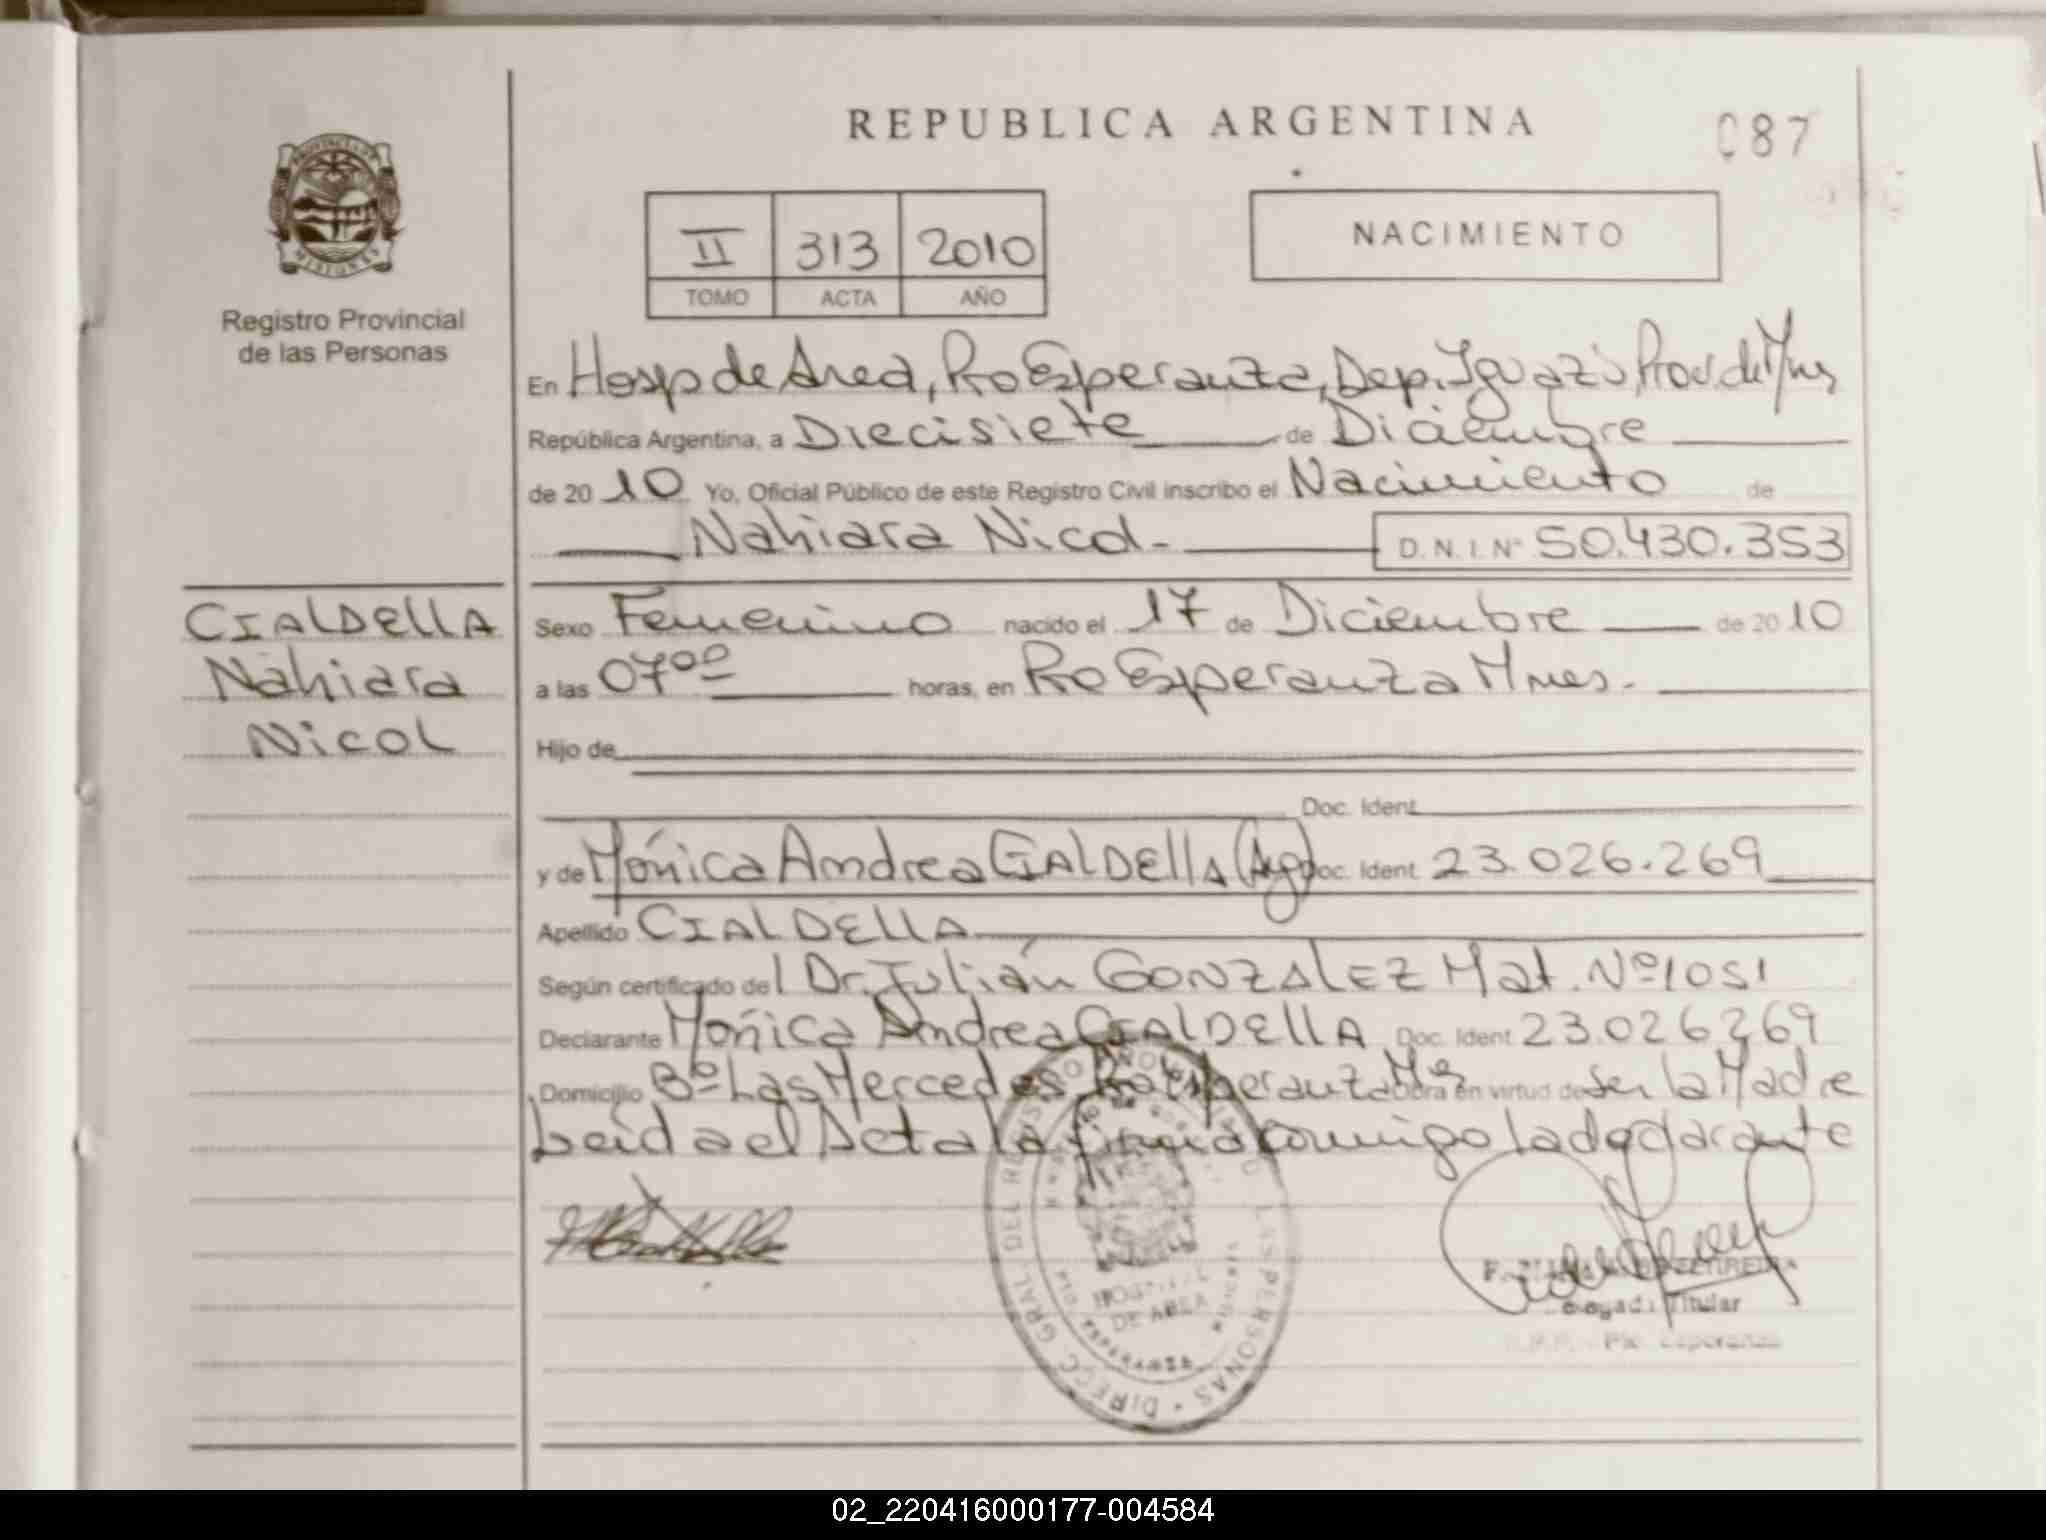 REPUBLICA ARGENTINA
087
PROVINCIA DE
MISIONES
Registro Provincial
de las Personas
II 313 2010
TOMO ACTA AÑO
NACIMIENTO
En Hosp de Area, Pto Esperanza, Dep. Iguazú, Prov. de Mnes
República Argentina, a Diecisiete de Diciembre
de 20 10 Yo, Oficial Público de este Registro Civil inscribo el Nacimiento de
Nahiara Nicol.- D.N.I. Nº 50.430.353
CIALDELLA
Nahiara
Nicol
Sexo Femenino nacido el 17 de Diciembre de 20 10
a las 07ºº horas, en Pto Esperanza Mnes.-
Hijo de
Doc. Ident.
y de Mónica Andrea CIALDELLA (Arg) Doc. Ident. 23.026.269
Apellido CIALDELLA
Según certificado del Dr. Julián GONZALEZ Mat. Nº 1051
Declarante Mónica Andrea CIALDELLA Doc. Ident. 23.026269
Domicilio Bº Las Mercedes Pto Esperanza Mnes Obra en virtud de Ser la Madre
Leida el Acta la firma conmigo la declarante
DIRECC GRAL. DEL REGISTRO PROVINCIAL DE LAS PERSONAS
HOSPITAL
DE AREA
ESPERANZA
Titular
Pto. Esperanza
02_220416000177-004584